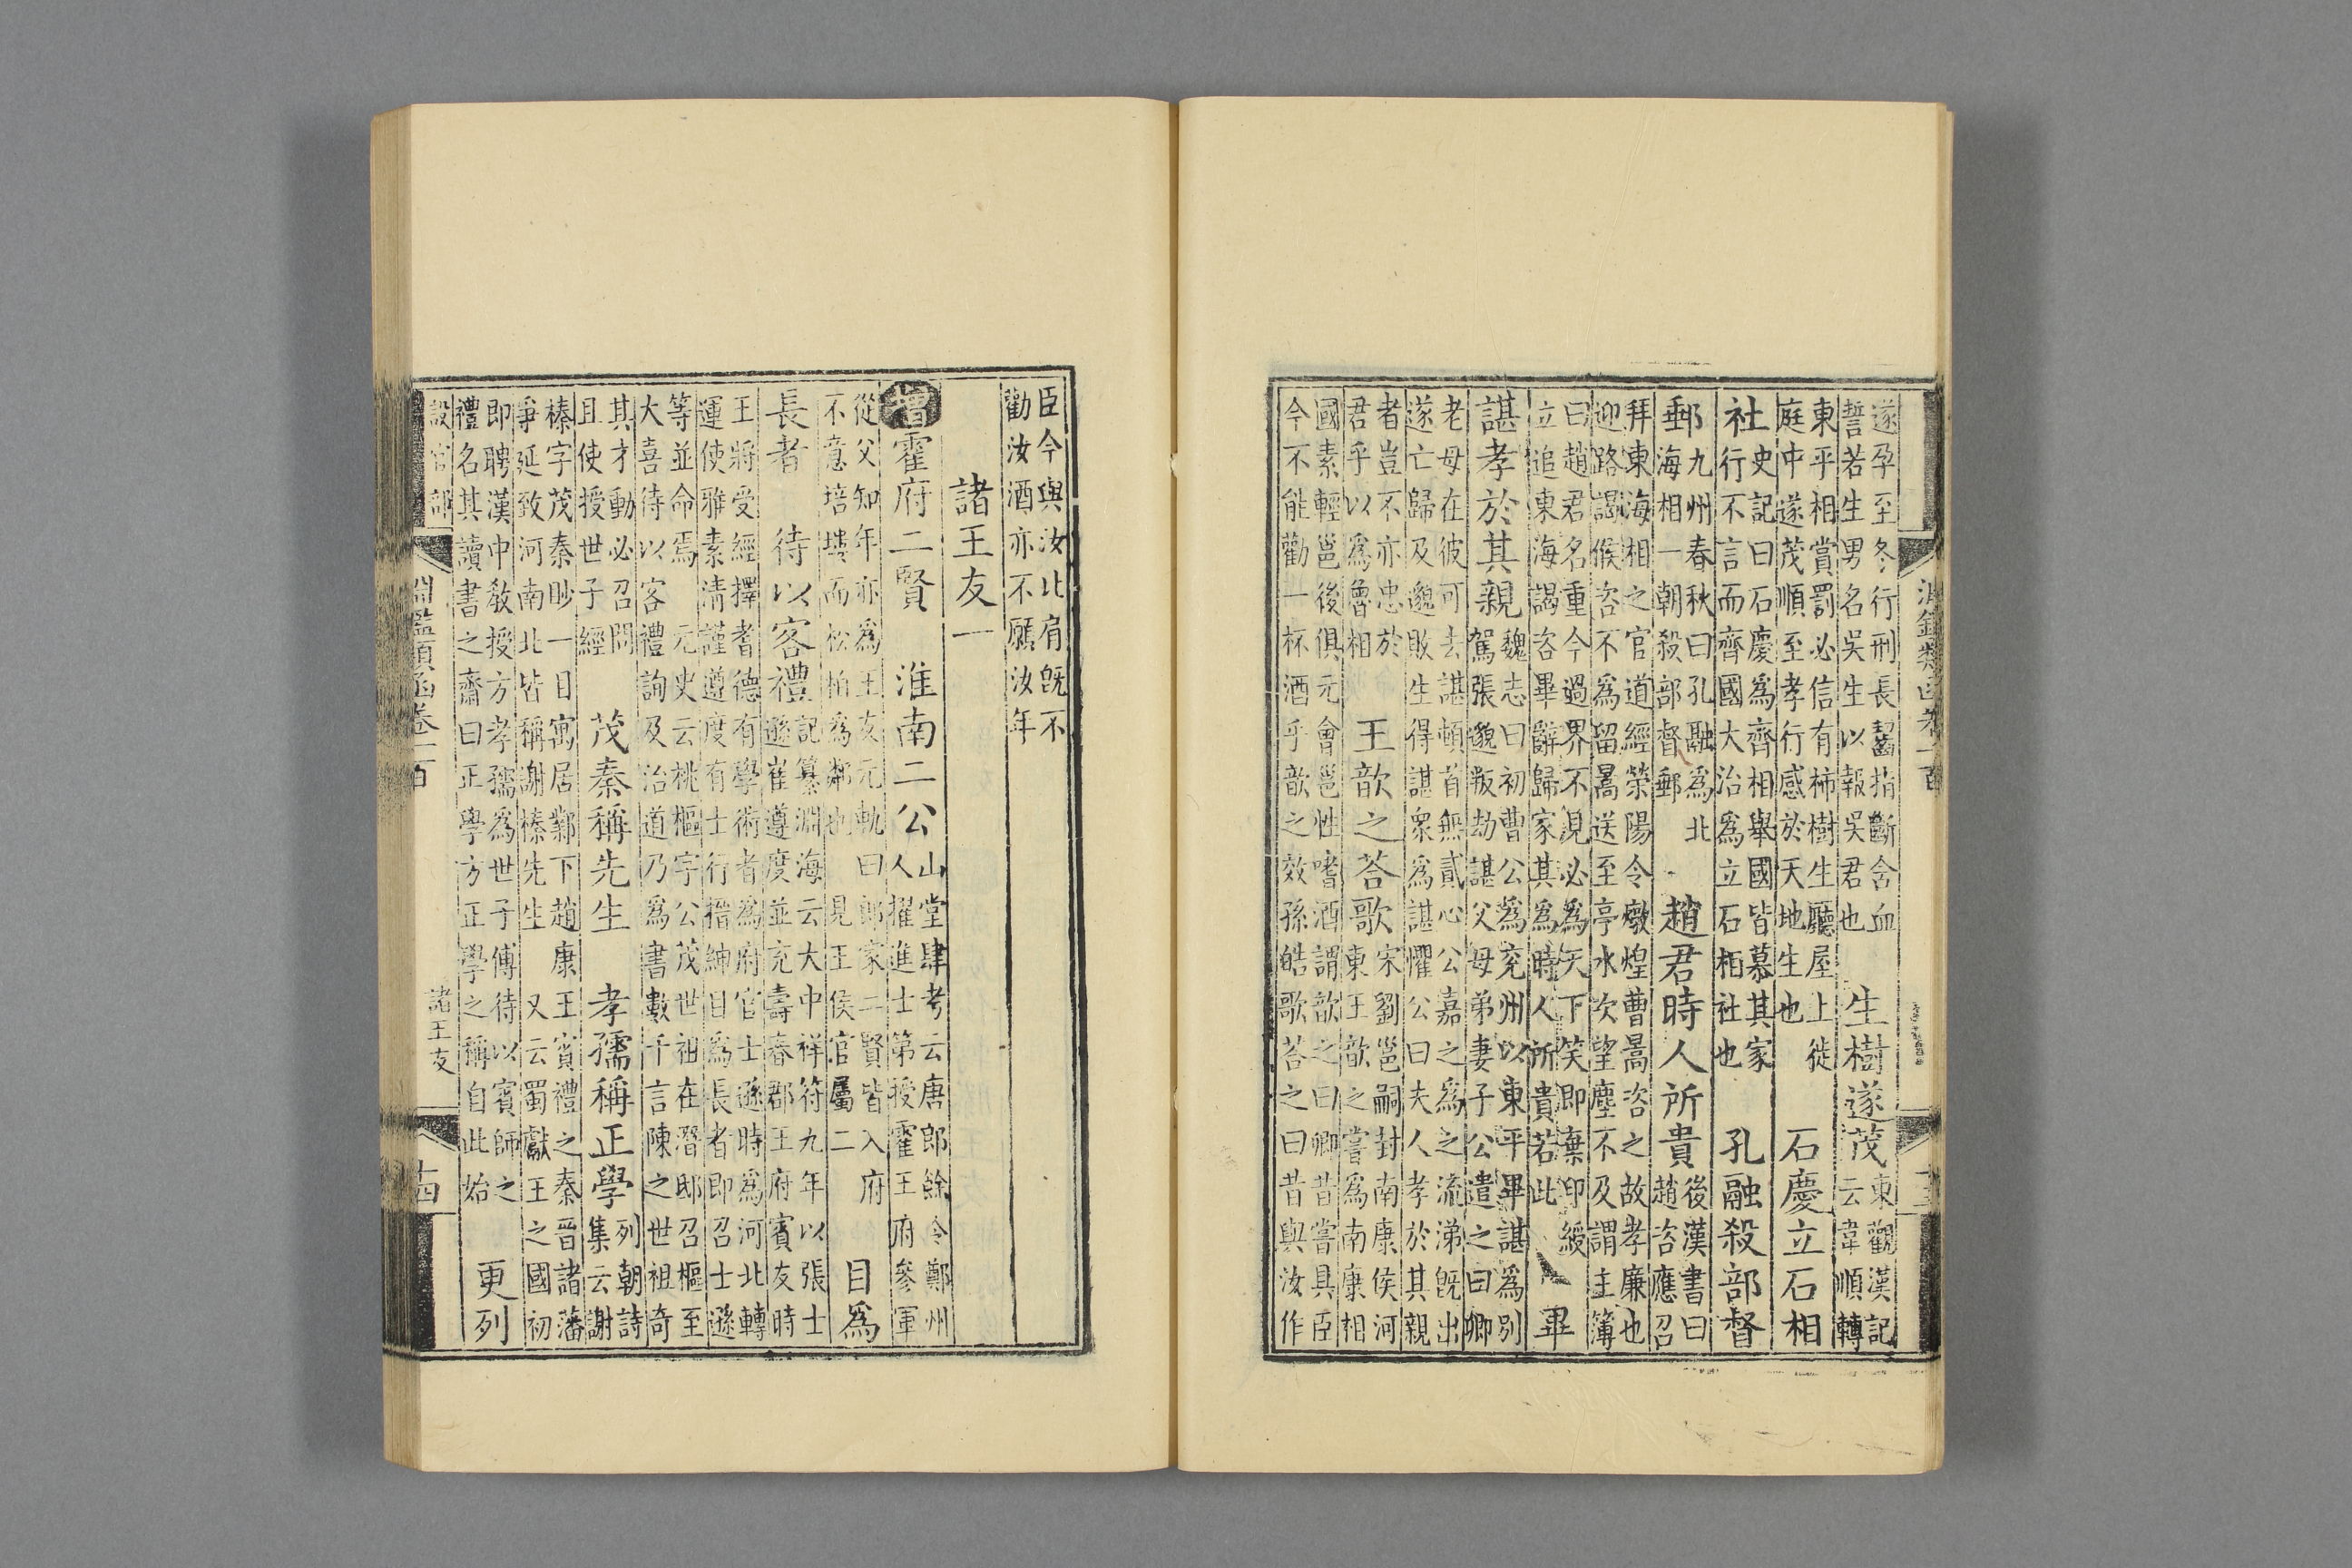 遂孕至冬行刑長齧指斷含血
誓若生男名吳生以報吳君也
生樹遂茂
東觀漢記
云韋順轉
東平相賞罰必信有柿樹生廳屋上徙
庭中遂茂順至孝行感於天地生也
石慶立石相
社
史記曰石慶為齊相舉國皆慕其家
行不言而齊國大治為立石相社也
孔融殺部督
郵
九州春秋曰孔融為北
海相一朝殺部督郵
趙君時人所貴
後漢書曰
趙咨應召
拜東海相之官道經滎陽令燉煌曹暠咨之故孝廉也
迎路謁候咨不為留暠送至亭水次望塵不及謂主簿
曰趙君名重今過界不見必為天下笑即棄印綬
立追東海謁咨畢辭歸家其為時人所貴若此
畢
諶孝於其親
魏志曰初曹公為兗州以東平畢諶為別
駕張邈叛劫諶父母弟妻子公遣之曰卿
老母在彼可去諶頓首無貳心公嘉之為之流涕旣出
遂亡歸及邈敗生得諶眾為諶懼公曰夫人孝於其親
者豈不亦忠於
君乎以為魯相
王歆之荅歌
宋劉邕嗣封南康侯河
東王歆之嘗為南康相
國素輕邕後俱元會邕性嗜酒謂歆之曰卿昔嘗具臣
今不能勸一杯酒乎歆之效孫皓歌荅之曰昔與汝作
臣今與汝比肩旣不
勸汝酒亦不願汝年
諸王友一
增
霍府二賢
淮南二公
山堂肆考云唐郎餘令鄭州
人擢進士第授霍王府參軍
從父知年亦為王友元軌曰郎家二賢皆入府
不意培塿而松柏為鄰也
見王侯官屬二
目為
長者
待以客禮
記纂淵海云大中祥符九年以張士
遜崔遵度並充壽春郡王府賓友時
王將受經擇耆德有學術者為府官士遜時為河北轉
運使雅素清謹遵度有士行搢紳目為長者即召士遜
等並命焉
元史云桃樞字公茂世祖在潛邸召樞至
大喜待以客禮詢及治道乃為書數千言陳之世祖奇
其才動必召問
且使授世子經
茂秦稱先生
孝孺稱正學
列朝詩
集云謝
榛字茂秦眇一目寓居鄴下趙康王賓禮之秦晉諸藩
爭延致河南北皆稱謝榛先生
又云蜀獻王之國初
即聘漢中教授方孝孺為世子傅待以賓師之
禮名其讀書之齋曰正學方正學之稱自此始
更列
設官部
淵鑑類函卷一百
諸王友
十四